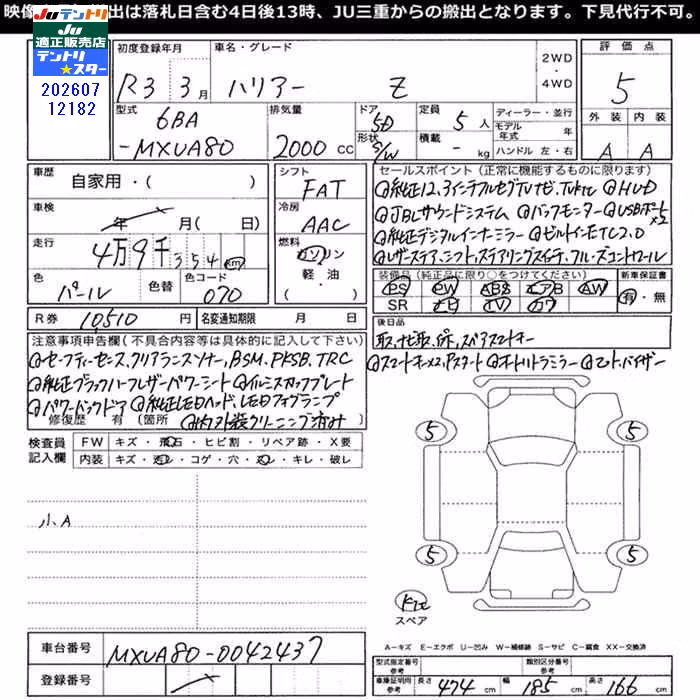 映像 出は落札日含む4日後13時、JU三重からの搬出となります。下見代行不可。
Juテントリ
JU 適正販売店
テントリ★スター
202607
12182
初度登録年月
R3 3月
車名・グレード
ハリアー Z
2WD・4WD
評価点
5
外装 内装
A A
型式
6BA
-MXUA80
排気量
2000 CC
ドア
5D
形状
S/W
定員
5人
積載
- kg
ディーラー・並行
モデル年式 年
ハンドル 左・右
車歴
自家用・( )
車検
年 月( 日)
走行
4万9千354km
色
パール
色替
色コード
070
シフト
FAT
冷房
AAC
燃料
ガソリン
軽・油
( )
セールスポイント(正常に機能するものに限ります)
@純正12.3インチフルセグTVナビ.TVkit @HUD
@JBLサウンドシステム @バックモニター @USBポート×2
@純正デジタルインナーミラー @ビルトインETC2.0
@レザーステア.シフト.ステアリングスイッチ.クルーズコントロール
装備品(純正品に限り○をつけてください)
PS PW ABS エアB AW
SR ナビ TV カワ
新車保証書
有・無
R券 10510円
名変通知期限 月 日
後日品
取.ナビ取.保.スペアスマートキー
注意事項申告欄(不具合内容等は具体的に記入して下さい)
@セーフティーセンス.クリアランスソナー.BSM.PKSB.TRC
@純正ブラックハーフレザーパワーシート @イルミスカッフプレート
@パワーバックドア @純正LEDヘッド.LEDフォグランプ
@スマートキー×2.Pスタート @オートリトラミラー @ドアバイザー
修復歴 有(箇所 @内外装クリーニング済み
検査員記入欄
FW キズ・飛石・ヒビ割・リペア跡・X要
内装 キズ・汚レ・コゲ・穴・スレ・キレ・破レ
小A
5 5
5 5
スペア
A-キズ E-エクボ U-凹み W-補修跡 S-サビ C-腐食 XX-交換済
車台番号
MXUA80-0042437
登録番号
型式指定番号 参考
類別区分番号 参考
車庫証明用参考
長さ 474 cm
幅 185 cm
高さ 166 cm